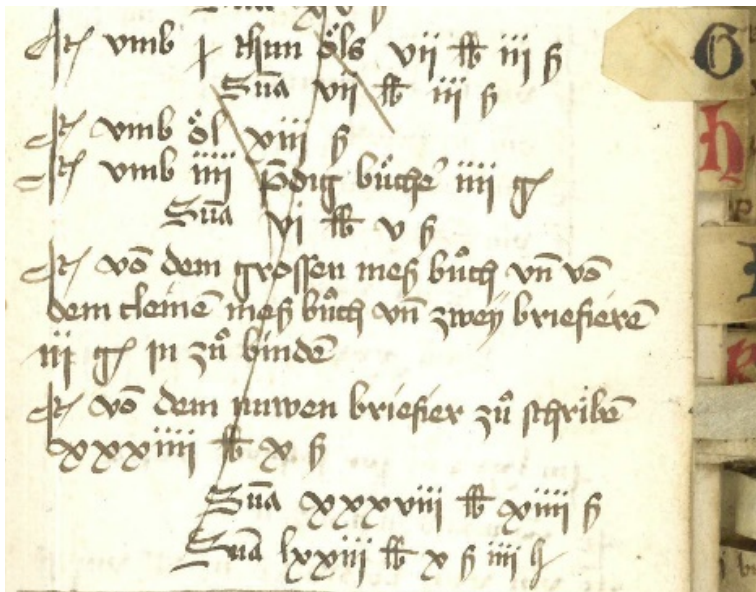 Suma xv ß
It vmb j thun öls vii lb iii ß
Sūa vii lb iii ß
It vmb öl xiii ß
It vmb iiii p̄dig bůcher iiii g
Sūa vi lb v ß
It vō dem grossen meß bůch vn̄ vō
dem cleinē meß bůch vn̄ zweÿ briefierē
iii g in zů bindē
It vō dem nuwen briefier zů schribē
xxxiiii lb x ß
Sūa xxxviii lb xiiii ß
Sūa lxxiii lb x ß iiii h
G
h